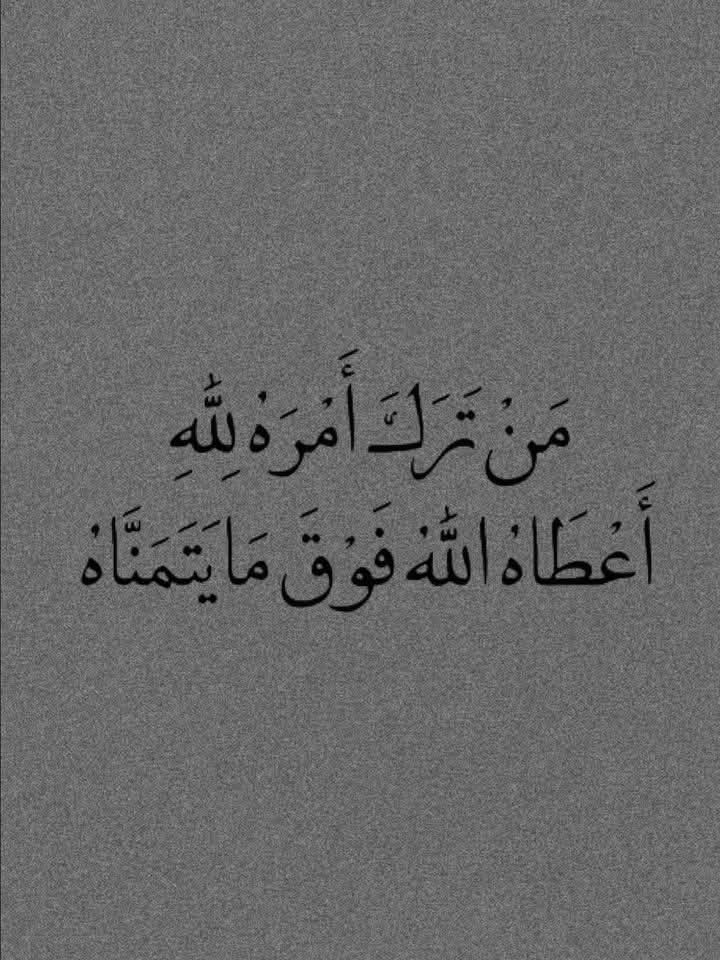 مَنْ تَرَكَ أَمْرَهُ لِلّٰهِ
أَعْطَاهُ اللّٰهُ فَوْقَ مَا يَتَمَنَّاهُ